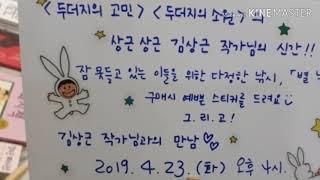 KINEMASTER
<두더지의 고민> <두더지의 소원> 의
상큰상큰 김상근 작가님의 신간!!
잠 못들고 있는 이들을 위한 다정한 낚시, 「별 낚
구매시 예쁜 스티커를 드려요
그.리.고!
김상근 작가님과의 만남♡
2019. 4. 23. (화) 오후 4시.